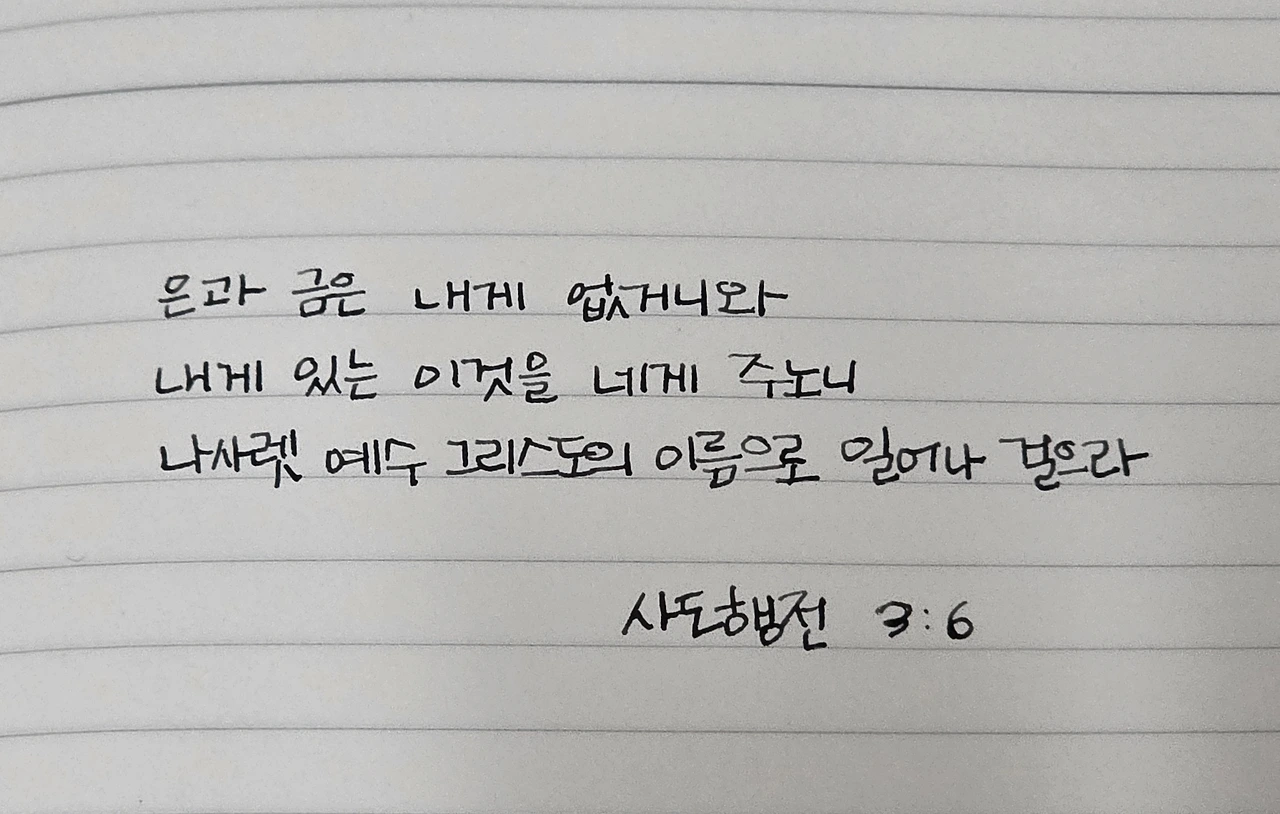 은과 금은 내게 없거니와
내게 있는 이것을 네게 주노니
나사렛 예수 그리스도의 이름으로 일어나 걸으라
사도행전 3:6